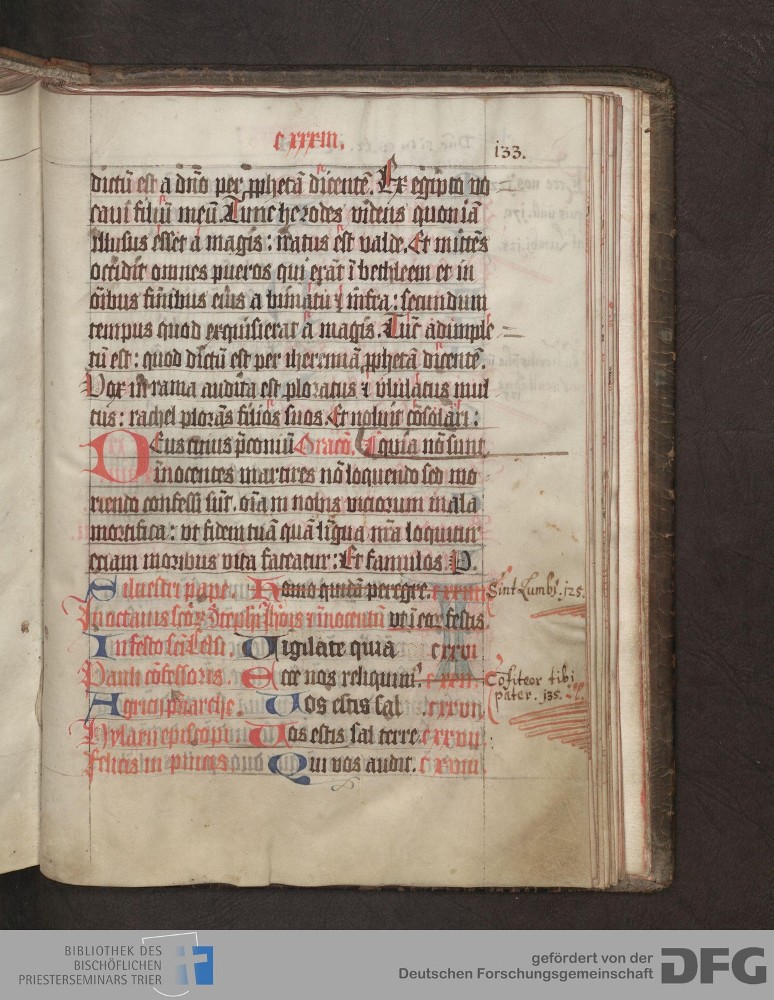 c xxxiii.
i33.
dictū est a dño per ꝓphetā dicentē. Ex egipto vo
caui filiū meū. Tunc herodes videns quoniā
illusus esset a magis: iratus est valde. Et mittēs
occidit omnes pueros qui erāt ī bethleem et in
oībus finibus eius a bimatu ⁊ infra: secundum
tempus quod exquisierat a magis. Tūc adimple
tū est: quod dictū est per iheremiā ꝓphetā dicentē.
Vox in rama audita est ploratus ⁊ vlulatus mul
tus: rachel plorās filios suos. Et noluit cōsolari:
DEus cuius p̄coniū Oracō. quia nō sunt
innocentes martires nō loquendo sed mo
riendo confessi sūt. oīa in nobis viciorum mala
mortifica: vt fidem tuā quā lingua nr̄a loquitur
eciam moribus vita fateatur: Et famulos. P.
Siluestri pape. Homo quidā peregre. cxxiiii
Sint Lumbi. j25.
In octauis scōꝝ Stephī Ihōis ⁊ innocentū vt ī eoꝝ festis.
In festo sci Celsi. Vigilate quia cxxvi
Pauli cōfessoris. Ecce nos reliquim⁹.
Cōfiteor tibi
pater. j35.
Agricii p̄iarche. Vos estis sal cxxvii
Hylarii episcopi Vos estis sal terre. cxxvii
Felicis in pincis Qui vos audit. cxviii.
BIBLIOTHEK DES
BISCHÖFLICHEN
PRIESTERSEMINARS TRIER
gefördert von der
Deutschen Forschungsgemeinschaft
DFG